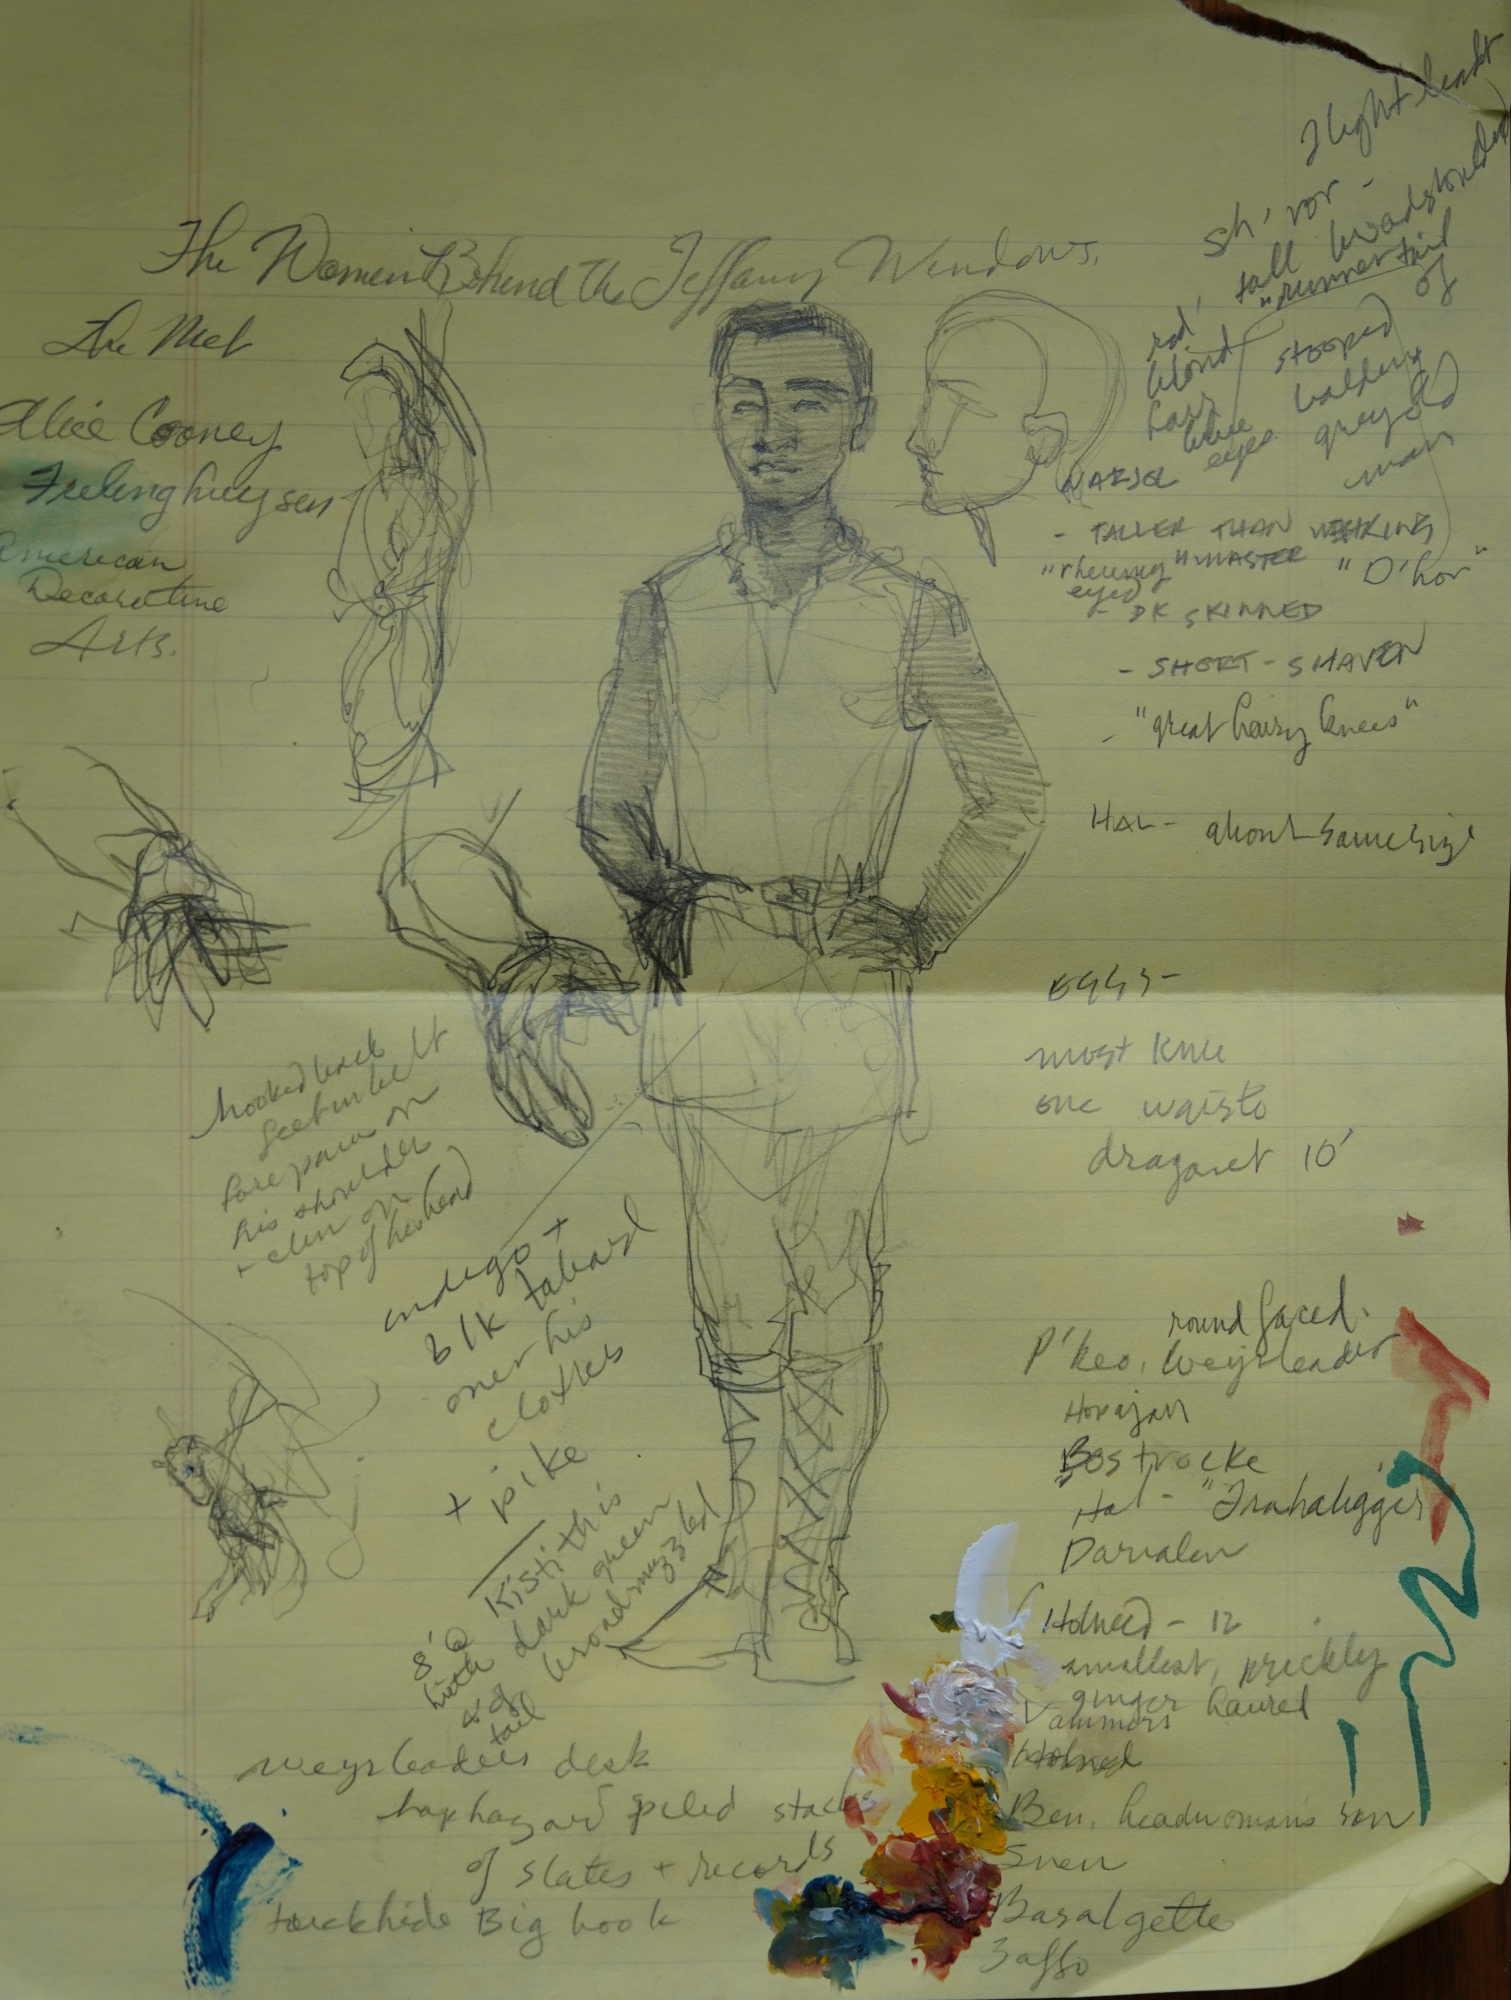 The Women Behind The Tiffany Windows.
The Met
Alice Cooney
Frelinghuysen
American
Decorative
Arts.
Sh'vor -
tall broadshouldered
"runner tail
red,
blond
hair
blue
eyes
stooped
balding
grey old
man
of
NARJOL
- TALLER THAN
"rheumy" MASTER "D'hor"
eyed
- DK SKINNED
- SHORT-SHAVEN
- "great hairy knees"
HAL - about same size
EGGS -
most knee
one waist to
dragonet 10'
hooked back
feet in belt
forepaw on
his shoulder
+ chin on
top of his head
indigo +
blk tabard
over his
clothes
+ pike
Kisithis
dark green
broadmuzzled
8' @
birth
4' of
tail
round faced.
P'keo, Weyrleader
Horajan
Bostrocke
Hal -
Darvalen
Holned - 12
smallest, prickly
ginger haired
Vammors
Holned
Ben, headwoman's son
Sven
Basalgette
Zaffo
weyrleaders desk
haphazard piled stacks
of slates + records
Big book